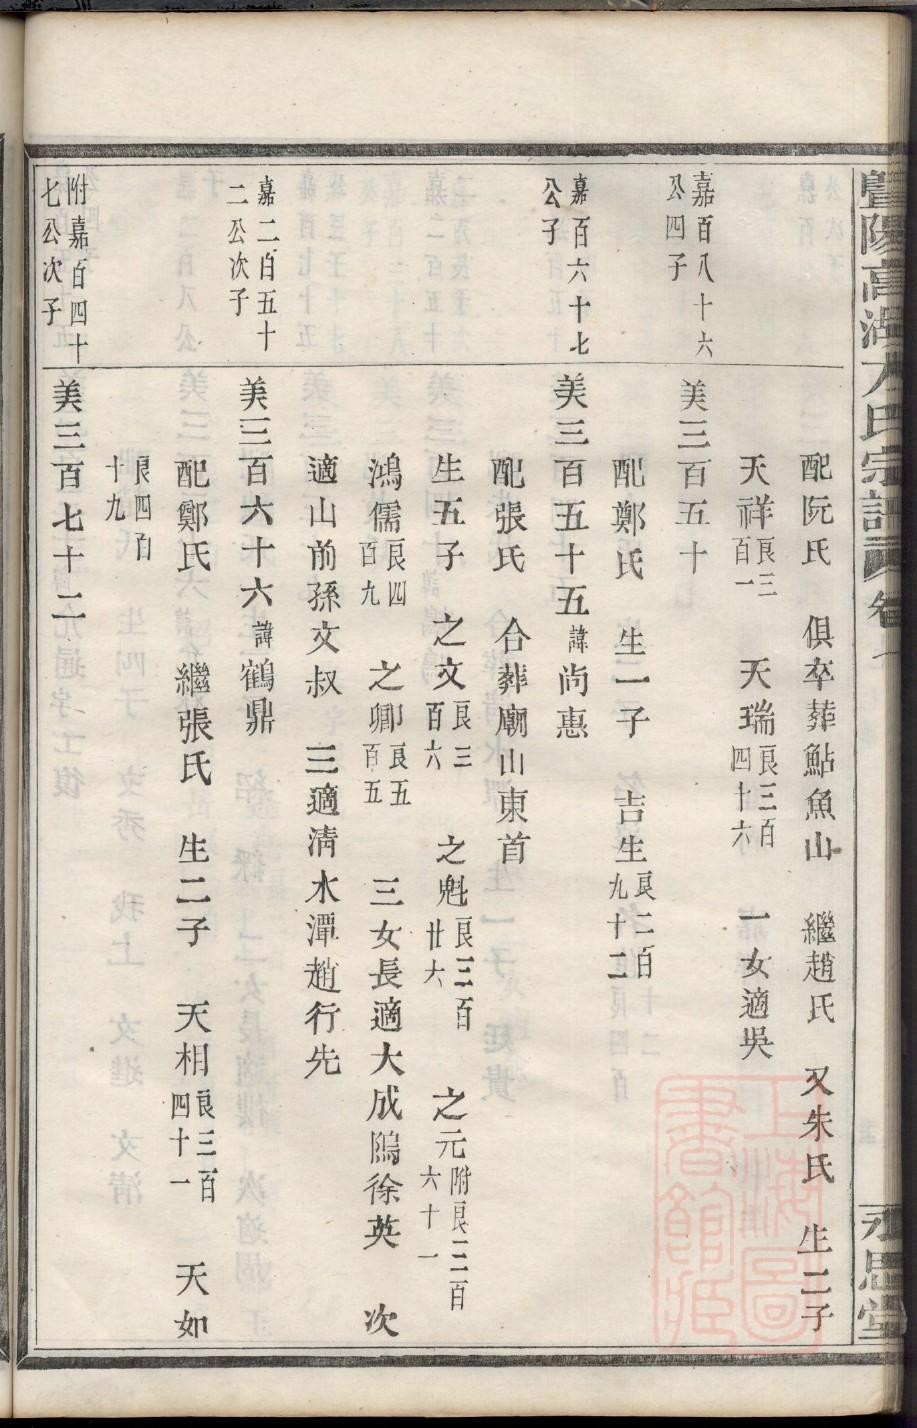 暨陽高湖方氏宗譜 卷一
永思堂
配阮氏 俱卒葬鮎魚山 繼趙氏 又朱氏 生二子
天祥良三百一 天瑞良三百四十六 一女適吳
嘉百八十六公四子
美三百五十
配鄭氏 生一子 吉生良二百九十二
嘉百六十七公子
美三百五十五諱尚惠
配張氏 合葬廟山東首
生五子 之文良三百六 之魁良三百廿六 之元附良三百六十一
鴻儒良四百九 之卿良五百五 三女長適大成隖徐英 次
適山前孫文叔 三適清水潭趙行先
嘉二百五十二公次子
美三百六十六諱鶴鼎
配鄭氏 繼張氏 生二子 天相良三百四十一 天如
良四百十九
附嘉百四十七公次子
美三百七十二
上海圖書館藏